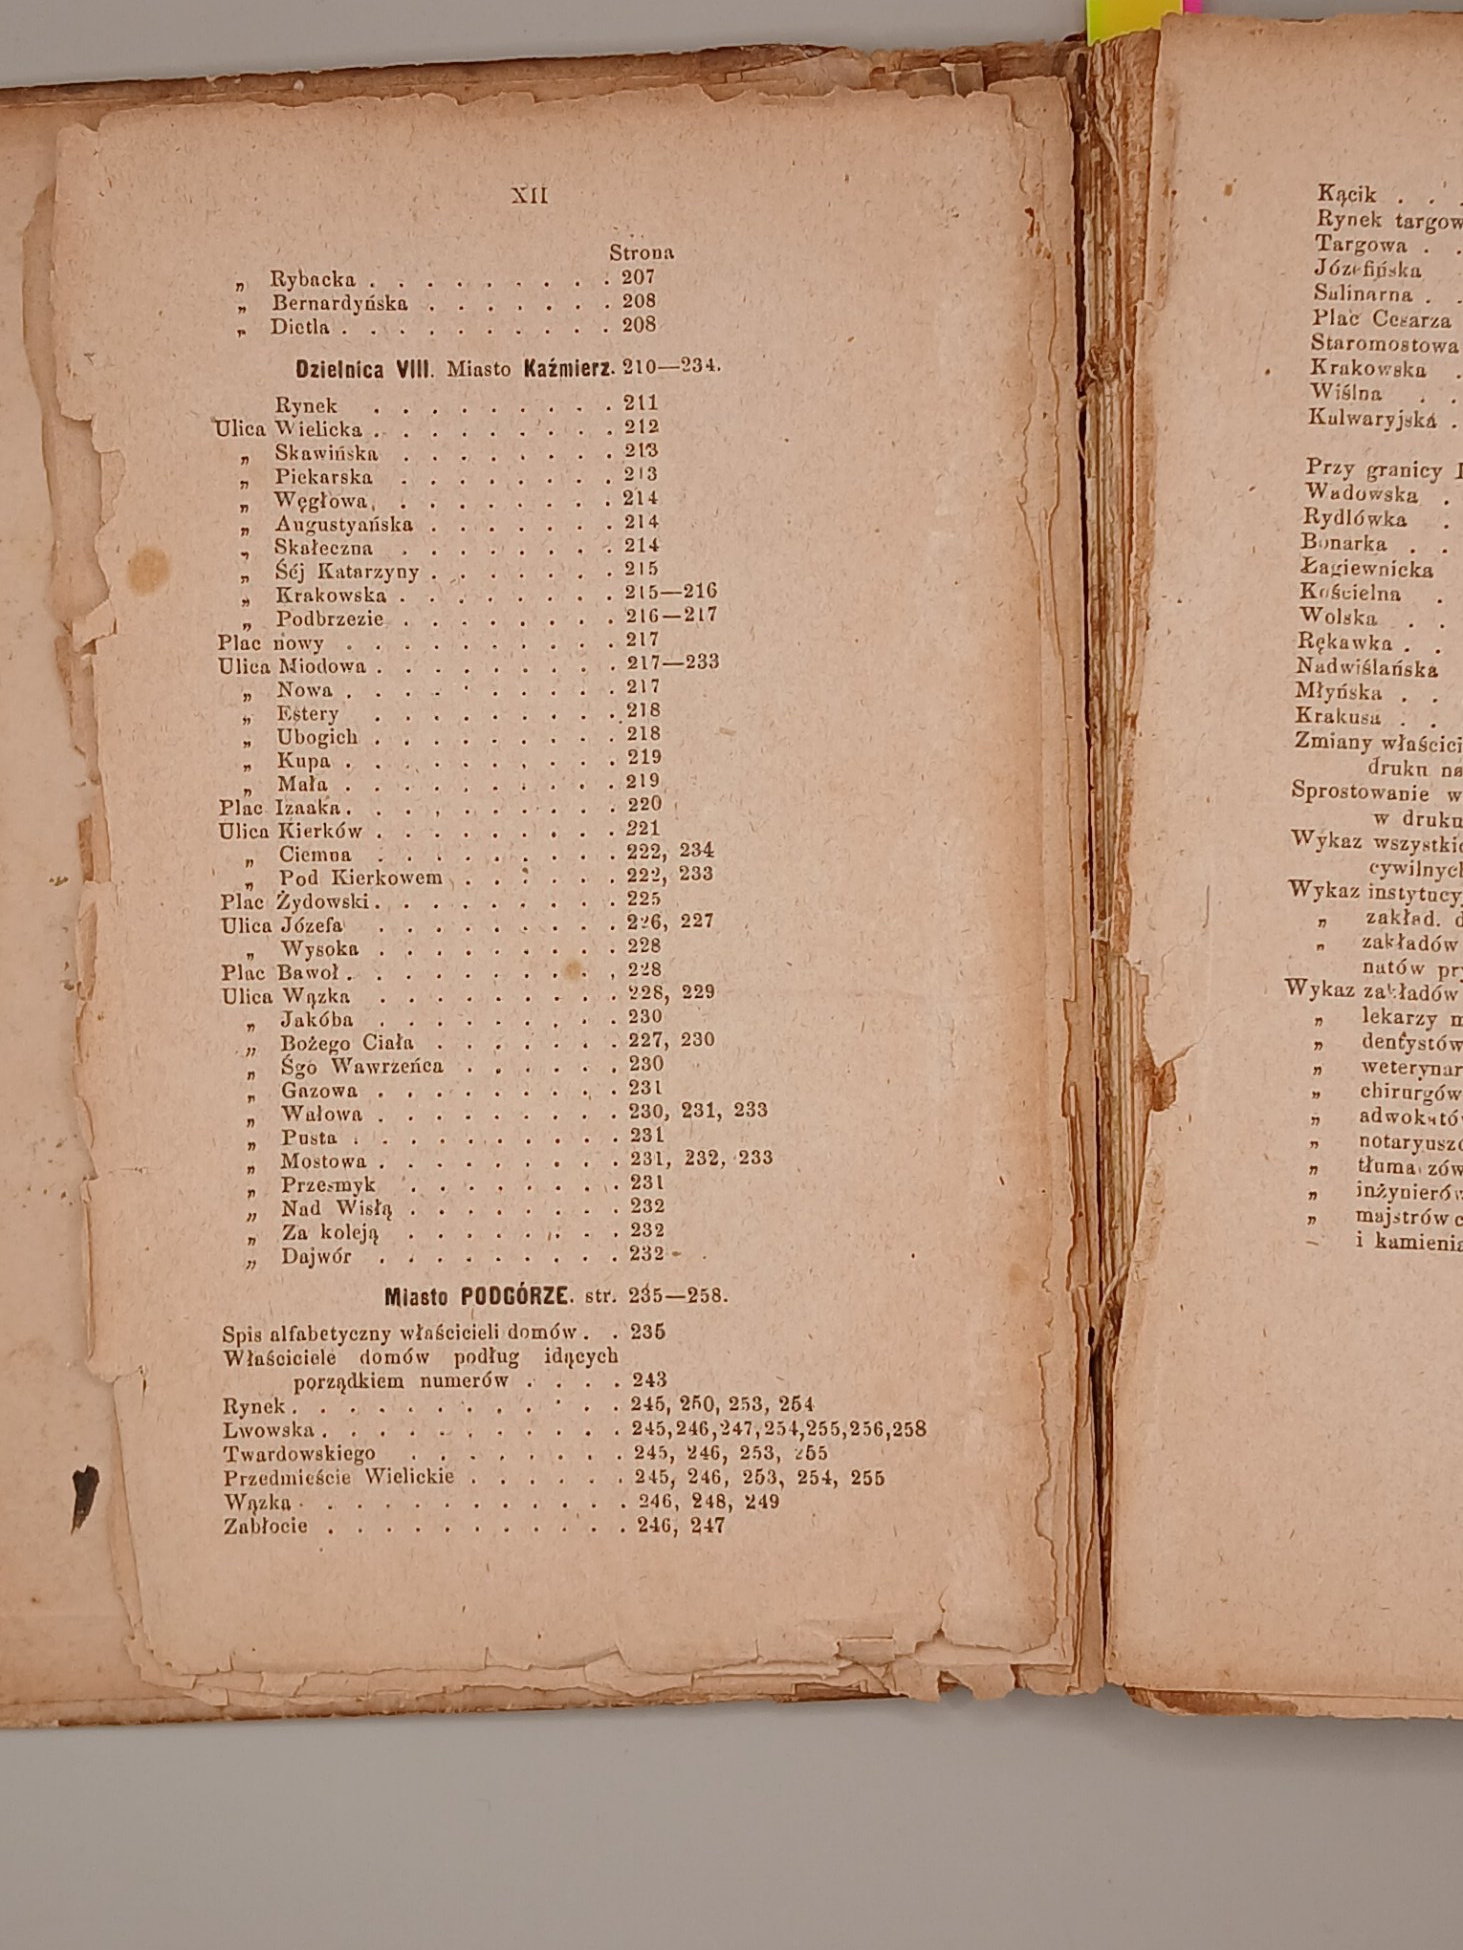 XII
Strona
„ Rybacka . . . . . . . . . 207
„ Bernardyńska . . . . . . . 208
„ Dietla . . . . . . . . . . 208
Dzielnica VIII. Miasto Kaźmierz. 210—234.
Rynek . . . . . . . . . 211
Ulica Wielicka . . . . . . . . . 212
„ Skawińska . . . . . . . . 213
„ Piekarska . . . . . . . . 213
„ Węgłowa . . . . . . . . 214
„ Augustyańska . . . . . . . 214
„ Skałeczna . . . . . . . . 214
„ Śéj Katarzyny . . . . . . . 215
„ Krakowska . . . . . . . . 215—216
„ Podbrzezie . . . . . . . . 216—217
Plac nowy . . . . . . . . . . 217
Ulica Miodowa . . . . . . . . . 217—233
„ Nowa . . . . . . . . . . 217
„ Estery . . . . . . . . . 218
„ Ubogich . . . . . . . . . 218
„ Kupa . . . . . . . . . . 219
„ Mała . . . . . . . . . . 219
Plac Izaaka . . . . . . . . . . 220
Ulica Kierków . . . . . . . . . 221
„ Ciemna . . . . . . . . . 222, 234
„ Pod Kierkowem . . . . . . 222, 233
Plac Żydowski . . . . . . . . . 225
Ulica Józefa . . . . . . . . . 226, 227
„ Wysoka . . . . . . . . . 228
Plac Bawoł . . . . . . . . . . 228
Ulica Wązka . . . . . . . . . 228, 229
„ Jakóba . . . . . . . . . 230
„ Bożego Ciała . . . . . . . 227, 230
„ Śgo Wawrzeńca . . . . . . 230
„ Gazowa . . . . . . . . . 231
„ Wałowa . . . . . . . . . 230, 231, 233
„ Pusta . . . . . . . . . . 231
„ Mostowa . . . . . . . . . 231, 232, 233
„ Przesmyk . . . . . . . . 231
„ Nad Wisłą . . . . . . . . 232
„ Za koleją . . . . . . . . 232
„ Dajwór . . . . . . . . . 232
Miasto PODGÓRZE. str. 235—258.
Spis alfabetyczny właścicieli domów . . 235
Właściciele domów podług idących
porządkiem numerów . . . . 243
Rynek . . . . . . . . . . . . 245, 250, 253, 254
Lwowska . . . . . . . . . . . 245,246,247,254,255,256,258
Twardowskiego . . . . . . . . 245, 246, 253, 255
Przedmieście Wielickie . . . . . . 245, 246, 253, 254, 255
Wązka . . . . . . . . . . . . 246, 248, 249
Zabłocie . . . . . . . . . . . 246, 247
Kącik . . .
Rynek targow
Targowa . .
Józefińska
Salinarna . .
Plac Cesarza
Staromostowa
Krakowska .
Wiślna . .
Kalwaryjska .
Przy granicy
Wadowska .
Rydlówka .
Bonarka . .
Łagiewnicka
Kościelna .
Wolska . .
Rękawka . .
Nadwiślańska
Młyńska . .
Krakusa . .
Zmiany właścici
druku na
Sprostowanie w
w druku
Wykaz wszystkic
cywilnych
Wykaz instytucy
„ zakład. d
„ zakładów
natów pry
Wykaz zakładów
„ lekarzy m
„ dentystów
„ weterynar
„ chirurgów
„ adwokató
„ notaryuszó
„ tłumaczów
„ inżynierów
„ majstrów c
– i kamienia